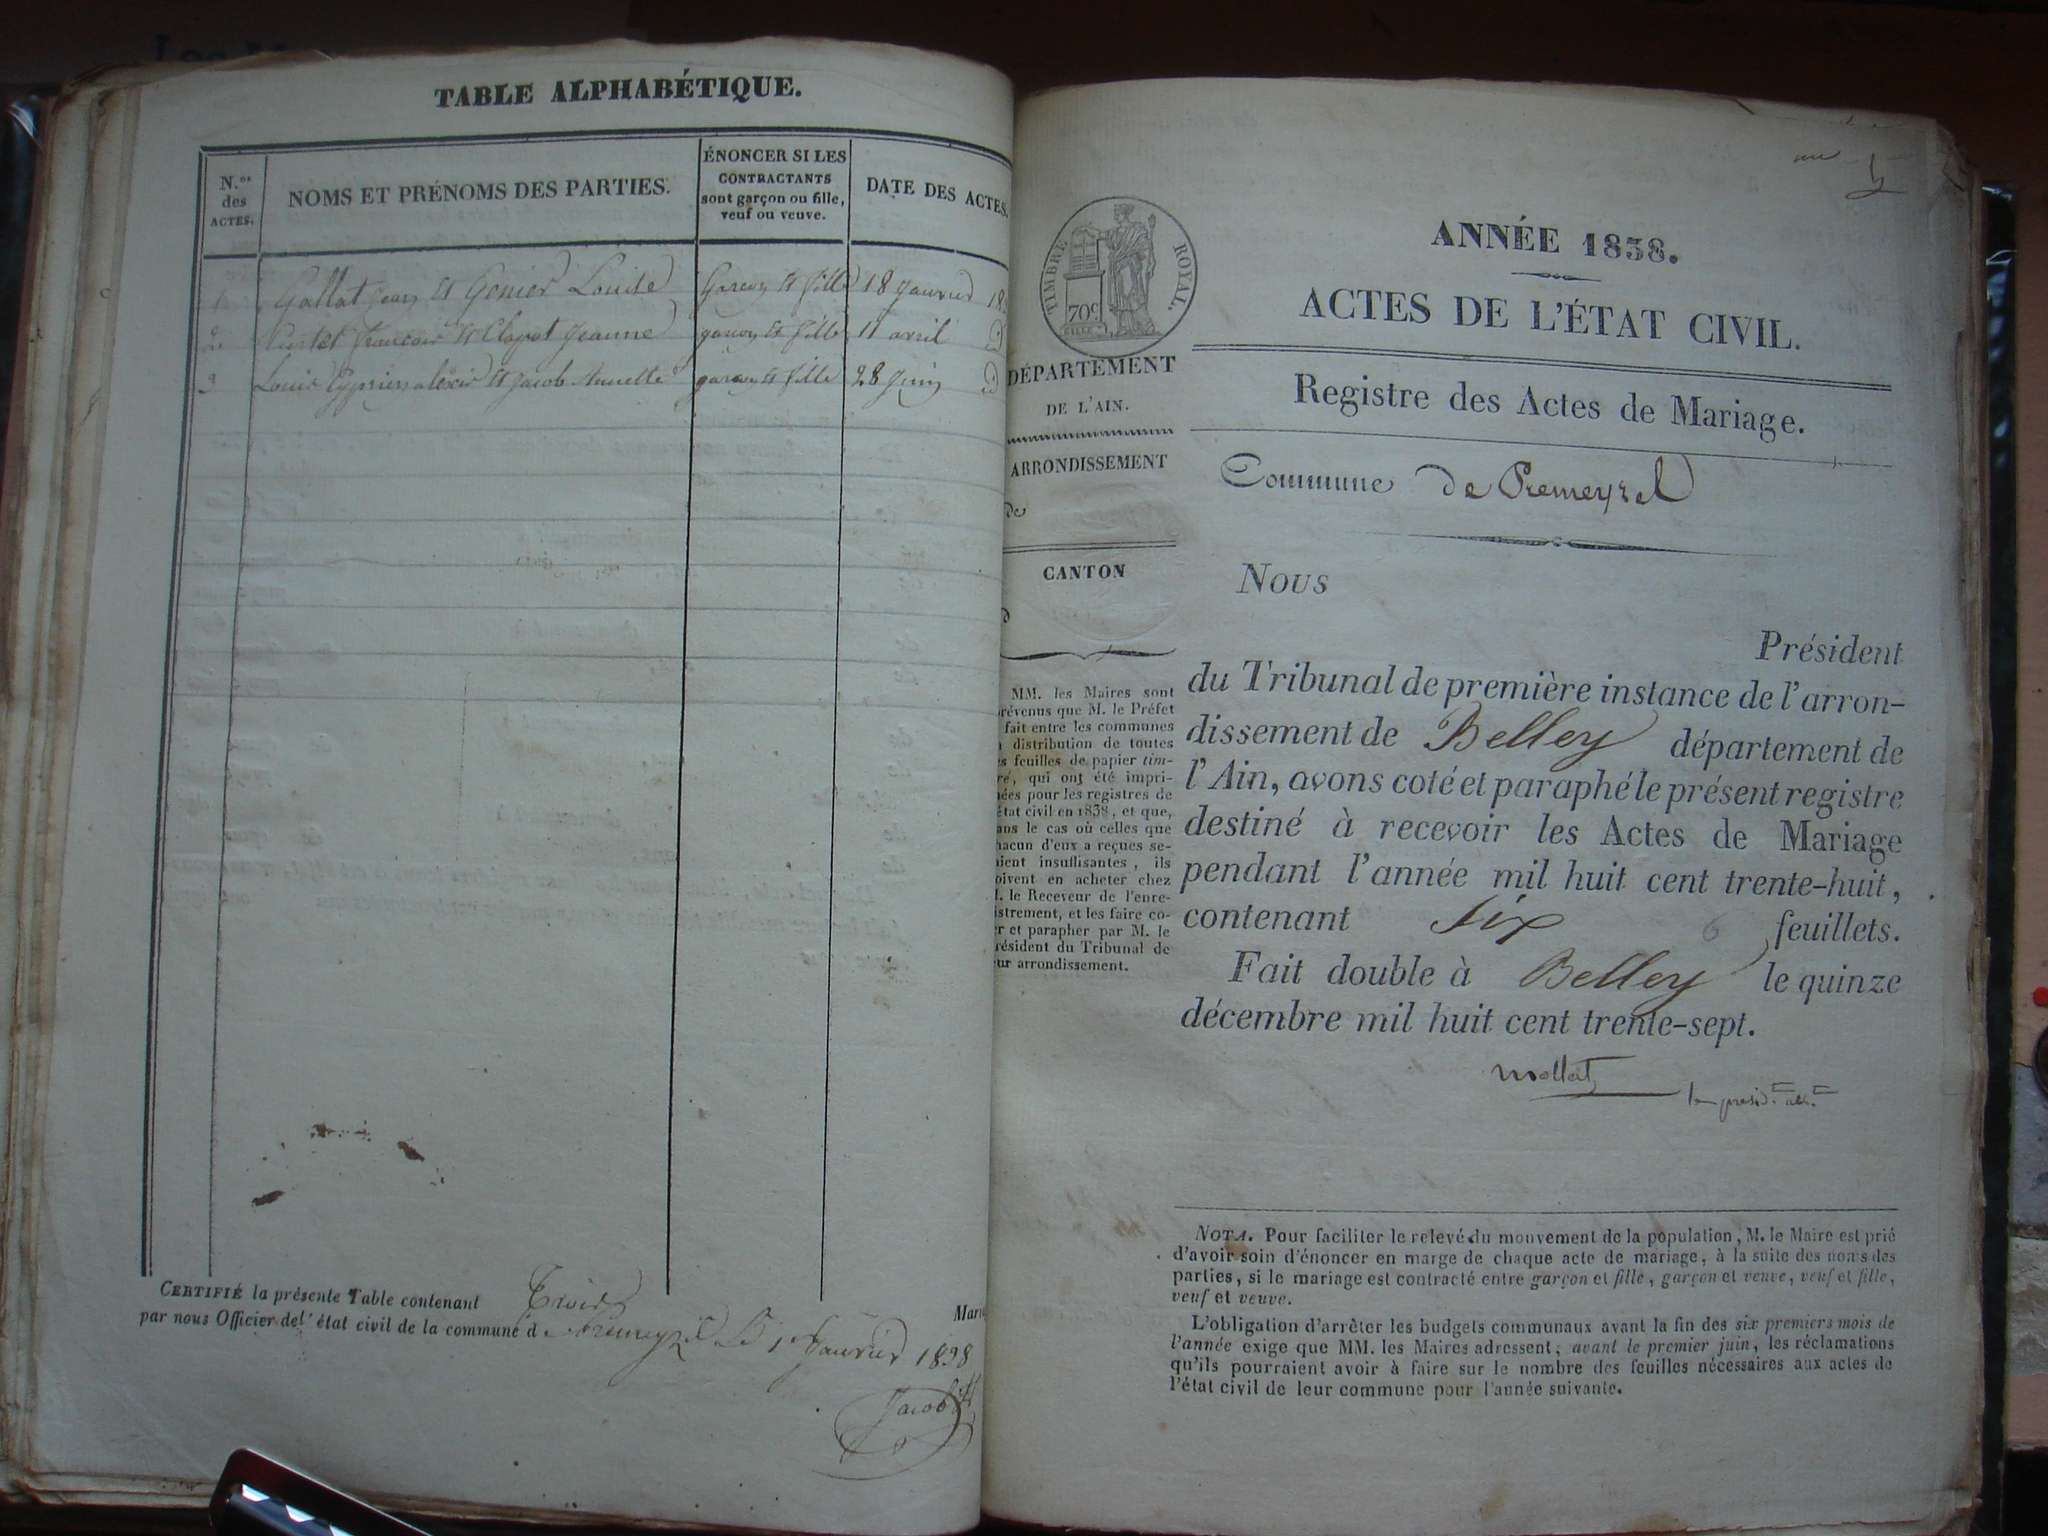 TABLE ALPHABÉTIQUE.
N.os des ACTES.
NOMS ET PRÉNOMS DES PARTIES.
ÉNONCER SI LES
CONTRACTANTS
sont garçon ou fille,
veuf ou veuve.
DATE DES ACTES.
Gallat Jean et Genier Louise garcon et fille 18 Janvier 18
2 francois et Clapot Jeanne garcon et fille 11 avril id
3 Louis Cyprien alexis et Jacob Annette garcon et fille 28 Juin id
CERTIFIÉ la présente Table contenant Trois Mari
par nous Officier de l'état civil de la commune d Premeyzel Le 1 Janvier 1838
Jacob
une
TIMBRE ROYAL.
70c
DÉPARTEMENT
DE L'AIN.
ARRONDISSEMENT
de
CANTON
d
MM. les Maires sont
révenus que M. le Préfet
fait entre les communes
a distribution de toutes
es feuilles de papier tim-
ré, qui ont été impri-
ées pour les registres de
état civil en 1838, et que,
ans le cas où celles que
hacun d'eux a reçues se-
aient insuffisantes, ils
oivent en acheter chez
M. le Receveur de l'enre-
istrement, et les faire co-
er et parapher par M. le
résident du Tribunal de
eur arrondissement.
ANNÉE 1838.
ACTES DE L'ÉTAT CIVIL.
Registre des Actes de Mariage.
Commune de Premeyzel
Nous
Président
du Tribunal de première instance de l'arron-
dissement de Belley département de
l'Ain, avons coté et paraphé le présent registre
destiné à recevoir les Actes de Mariage
pendant l'année mil huit cent trente-huit,
contenant six 6 feuillets.
Fait double à Belley le quinze
décembre mil huit cent trente-sept.
Mollet
NOTA. Pour faciliter le relevé du mouvement de la population, M. le Maire est prié
d'avoir soin d'énoncer en marge de chaque acte de mariage, à la suite des noms des
parties, si le mariage est contracté entre garçon et fille, garçon et veuve, veuf et fille,
veuf et veuve.
L'obligation d'arrêter les budgets communaux avant la fin des six premiers mois de
l'année exige que MM. les Maires adressent, avant le premier juin, les réclamations
qu'ils pourraient avoir à faire sur le nombre des feuilles nécessaires aux actes de
l'état civil de leur commune pour l'année suivante.